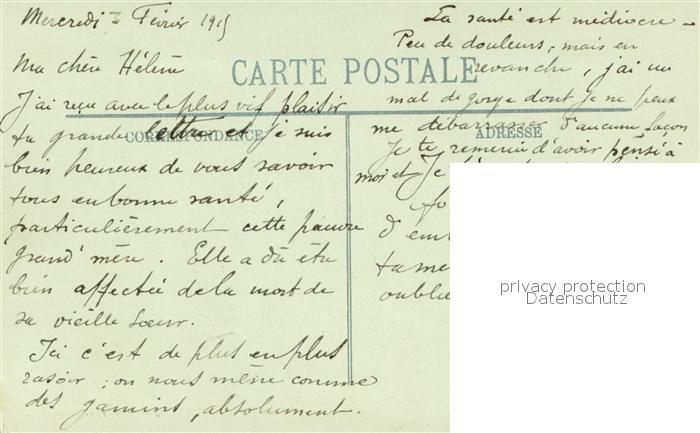 Mercredi 3 Février 1915
Ma chère Hélène
CARTE POSTALE
CORRESPONDANCE
ADRESSE
J'ai reçu avec le plus vif plaisir
ta grande lettre et je suis
bien heureux de vous savoir
tous en bonne santé,
particulièrement cette pauvre
grand'mère. Elle a dû être
bien affectée de la mort de
sa vieille soeur.
Ici c'est de plus en plus
rasoir ; on nous mène comme
des gamins, absolument.
La santé est médiocre -
Peu de douleurs, mais en
revanche, j'ai un
mal de gorge dont je ne peux
me débarrasser d'aucune façon
Je te remercie d'avoir pensé à
moi et je
d'em
ta me
oublie
privacy protection
Datenschutz